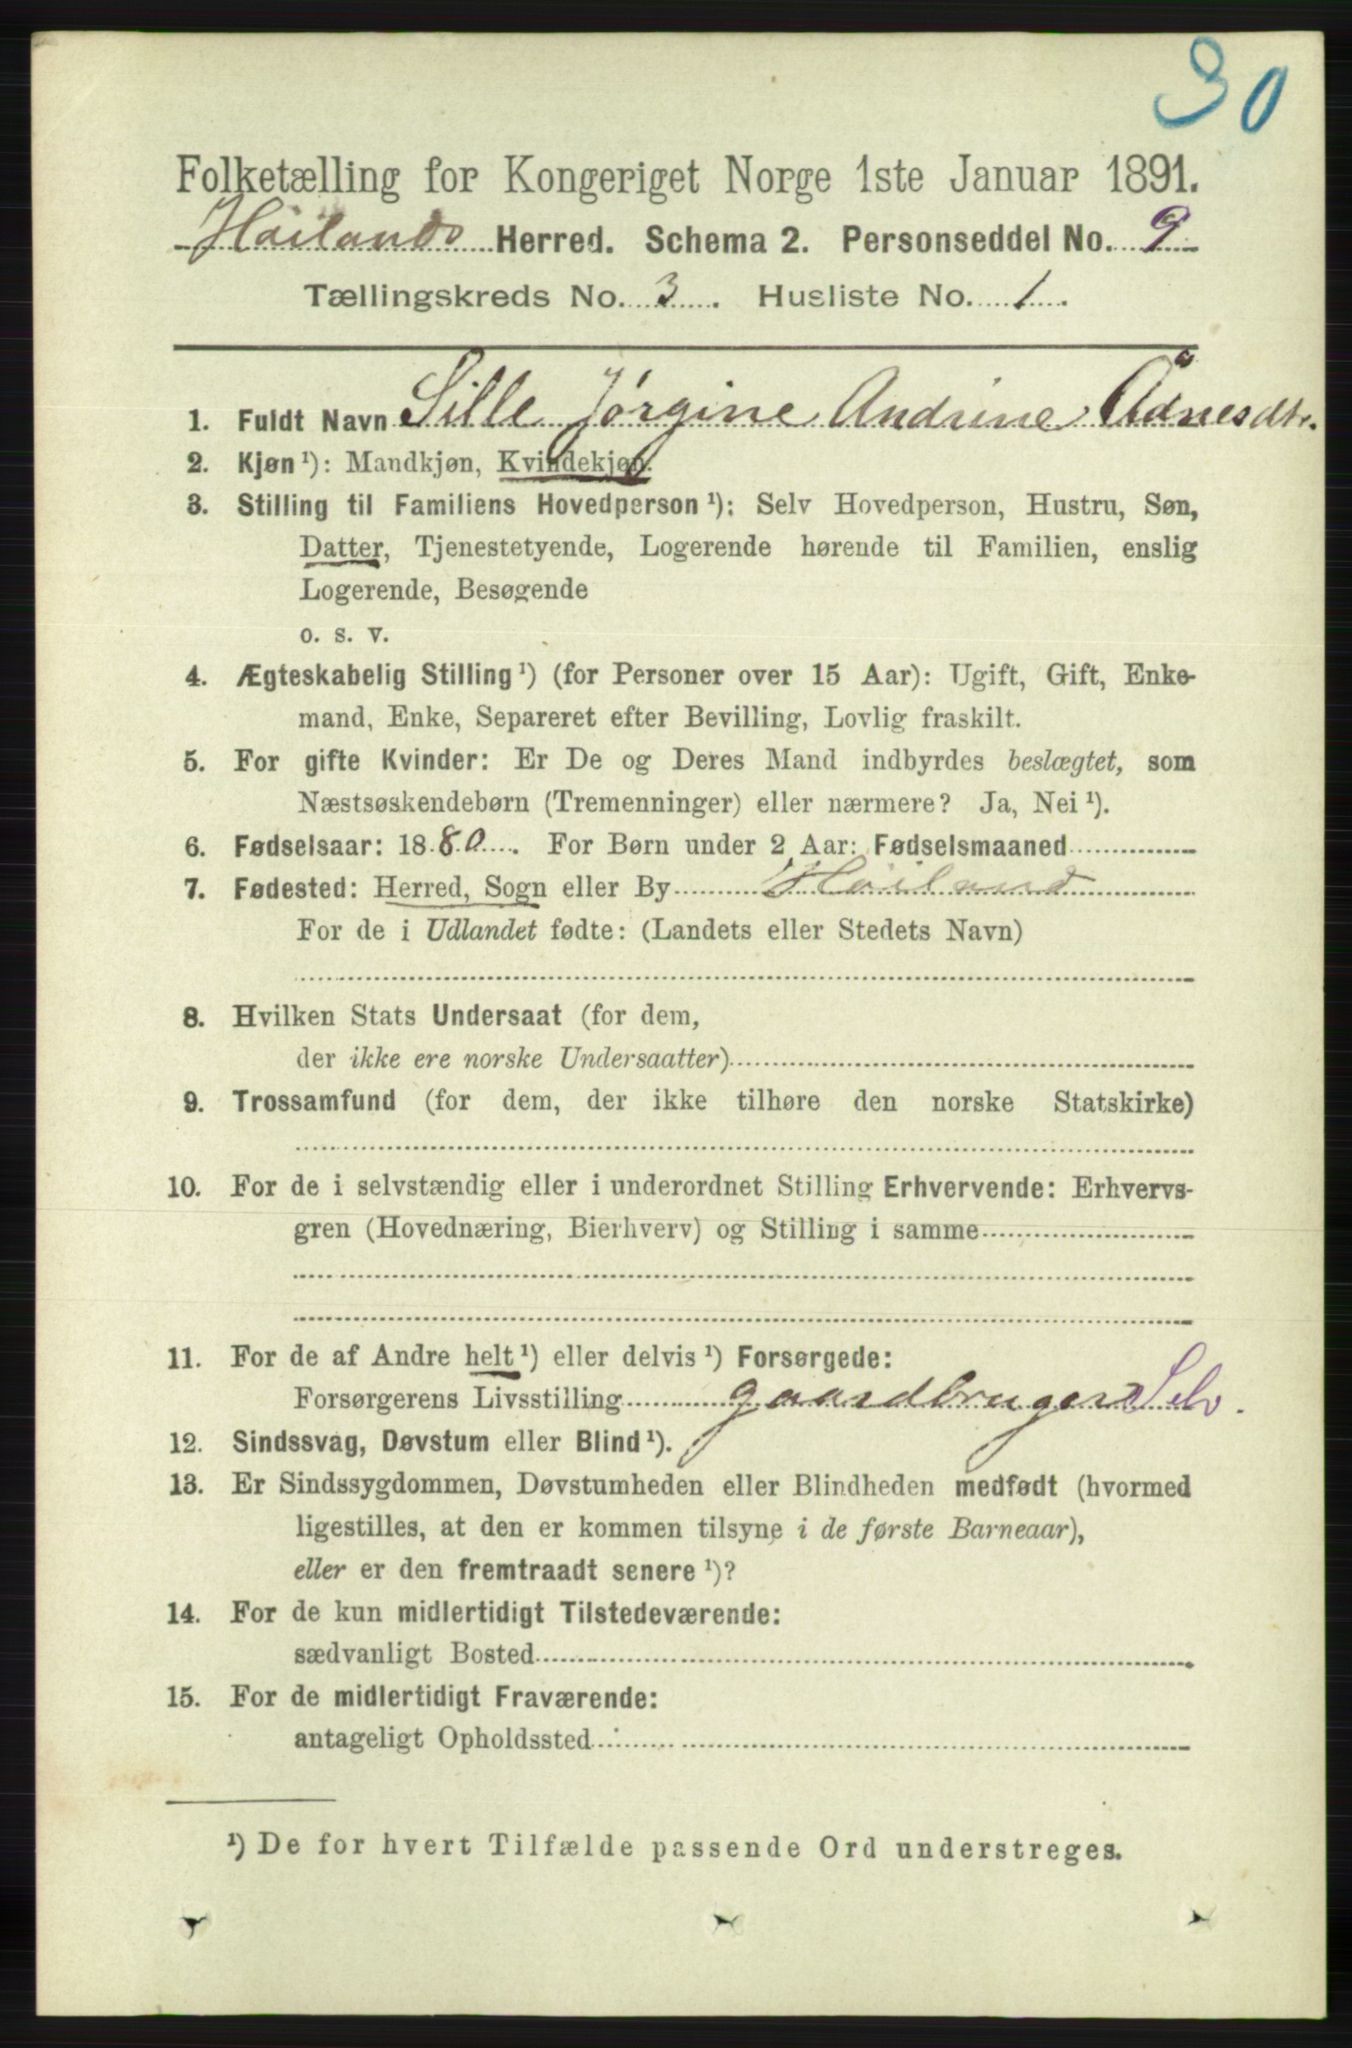 30
Folketælling for Kongeriget Norge 1ste Januar 1891.
Høilands Herred. Schema 2. Personseddel No. 9
Tællingskreds No. 3. Husliste No. 1.
1. Fuldt Navn Sille Jørgine Andrine Ådnesdtr.
2. Kjøn ¹): Mandkjøn, Kvindekjøn.
3. Stilling til Familiens Hovedperson ¹): Selv Hovedperson, Hustru, Søn,
Datter, Tjenestetyende, Logerende hørende til Familien, enslig
Logerende, Besøgende
o. s. v.
4. Ægteskabelig Stilling ¹) (for Personer over 15 Aar): Ugift, Gift, Enke-
mand, Enke, Separeret efter Bevilling, Lovlig fraskilt.
5. For gifte Kvinder: Er De og Deres Mand indbyrdes beslægtet, som
Næstsøskendebørn (Tremenninger) eller nærmere? Ja, Nei ¹).
6. Fødselsaar: 1880. For Børn under 2 Aar: Fødselsmaaned
7. Fødested: Herred, Sogn eller By Høiland
For de i Udlandet fødte: (Landets eller Stedets Navn)
8. Hvilken Stats Undersaat (for dem,
der ikke ere norske Undersaatter)
9. Trossamfund (for dem, der ikke tilhøre den norske Statskirke)
10. For de i selvstændig eller i underordnet Stilling Erhvervende: Erhvervs-
gren (Hovednæring, Bierhverv) og Stilling i samme
11. For de af Andre helt ¹) eller delvis ¹) Forsørgede:
Forsørgerens Livsstilling gaardbruger Selv.
12. Sindssvag, Døvstum eller Blind ¹).
13. Er Sindssygdommen, Døvstumheden eller Blindheden medfødt (hvormed
ligestilles, at den er kommen tilsyne i de første Barneaar),
eller er den fremtraadt senere ¹)?
14. For de kun midlertidigt Tilstedeværende:
sædvanligt Bosted
15. For de midlertidigt Fraværende:
antageligt Opholdssted
¹) De for hvert Tilfælde passende Ord understreges.